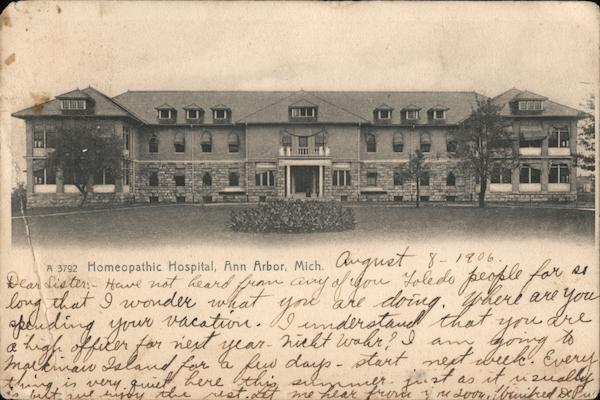 A 3792 Homeopathic Hospital, Ann Arbor, Mich.
August 8 - 1906.
Dear Sister;- Have not heard from any of you Toledo people for so
long that I wonder what you are doing. Where are you
spending your vacation. I understand that you are
a high officer for next year - nicht wahr? I am going to
Mackinaw Island for a few days - start next week. Every
thing is very quiet here this summer - just as it usually
is but we enjoy the rest. Let me hear from you soon, Winifred